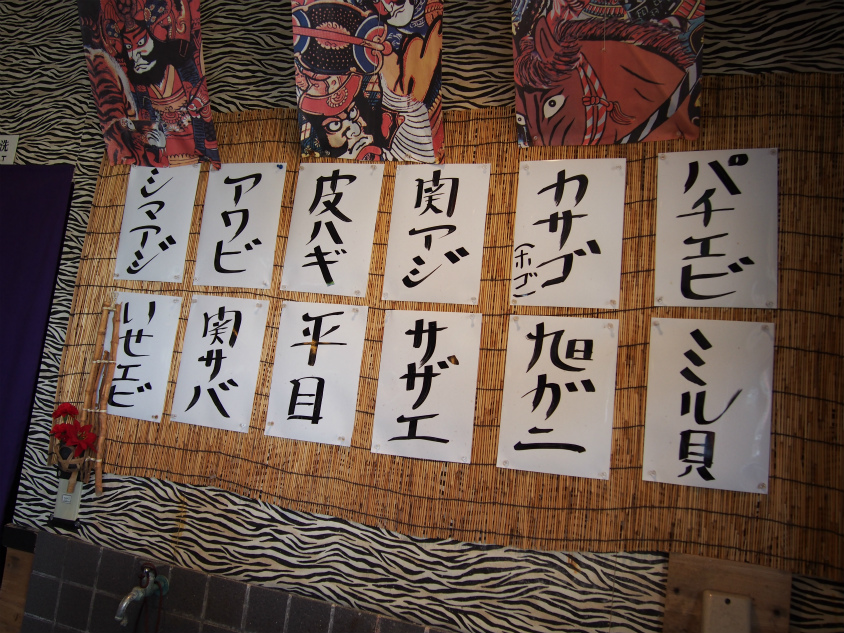 パチエビ
カサゴ
(ホゴ)
関アジ
皮ハギ
アワビ
シマアジ
ミル貝
旭ガニ
サザエ
平目
関サバ
いせエビ
洗